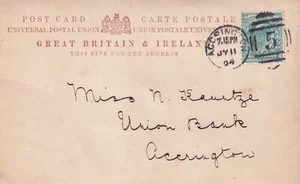 POST CARD CARTE POSTALE
UNIVERSAL POSTAL UNION UNION POSTALE UNIVERSELLE
GREAT BRITAIN & IRELAND
THIS SIDE FOR THE ADDRESS
ACCRINGTON
7.15 PM
JY 11
04
5
Miss N. Kautze
Union Bank
Accrington